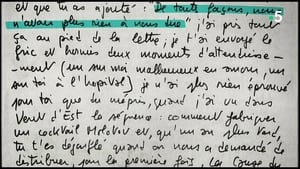 et que tu as ajouté : De toute façons, nous 5
n'avons plus rien à nous dire" j'ai pris tout
ça au pied de la lettre ; je t'ai envoyé le
fric et hormis deux moments d'attendrisse-
-ment (un sur moi malheureux en amour, un
sur toi à l'hopital) je n'ai plus rien éprouvé
pour toi que du mépris, quand j'ai vu dans
Vent d'Est la séquence : comment fabriquer
un cocktail Molotov et, qu'un an plus tard,
tu t'es dégonflé quand on nous a demandé de
distribuer pour la première fois, La Cause du